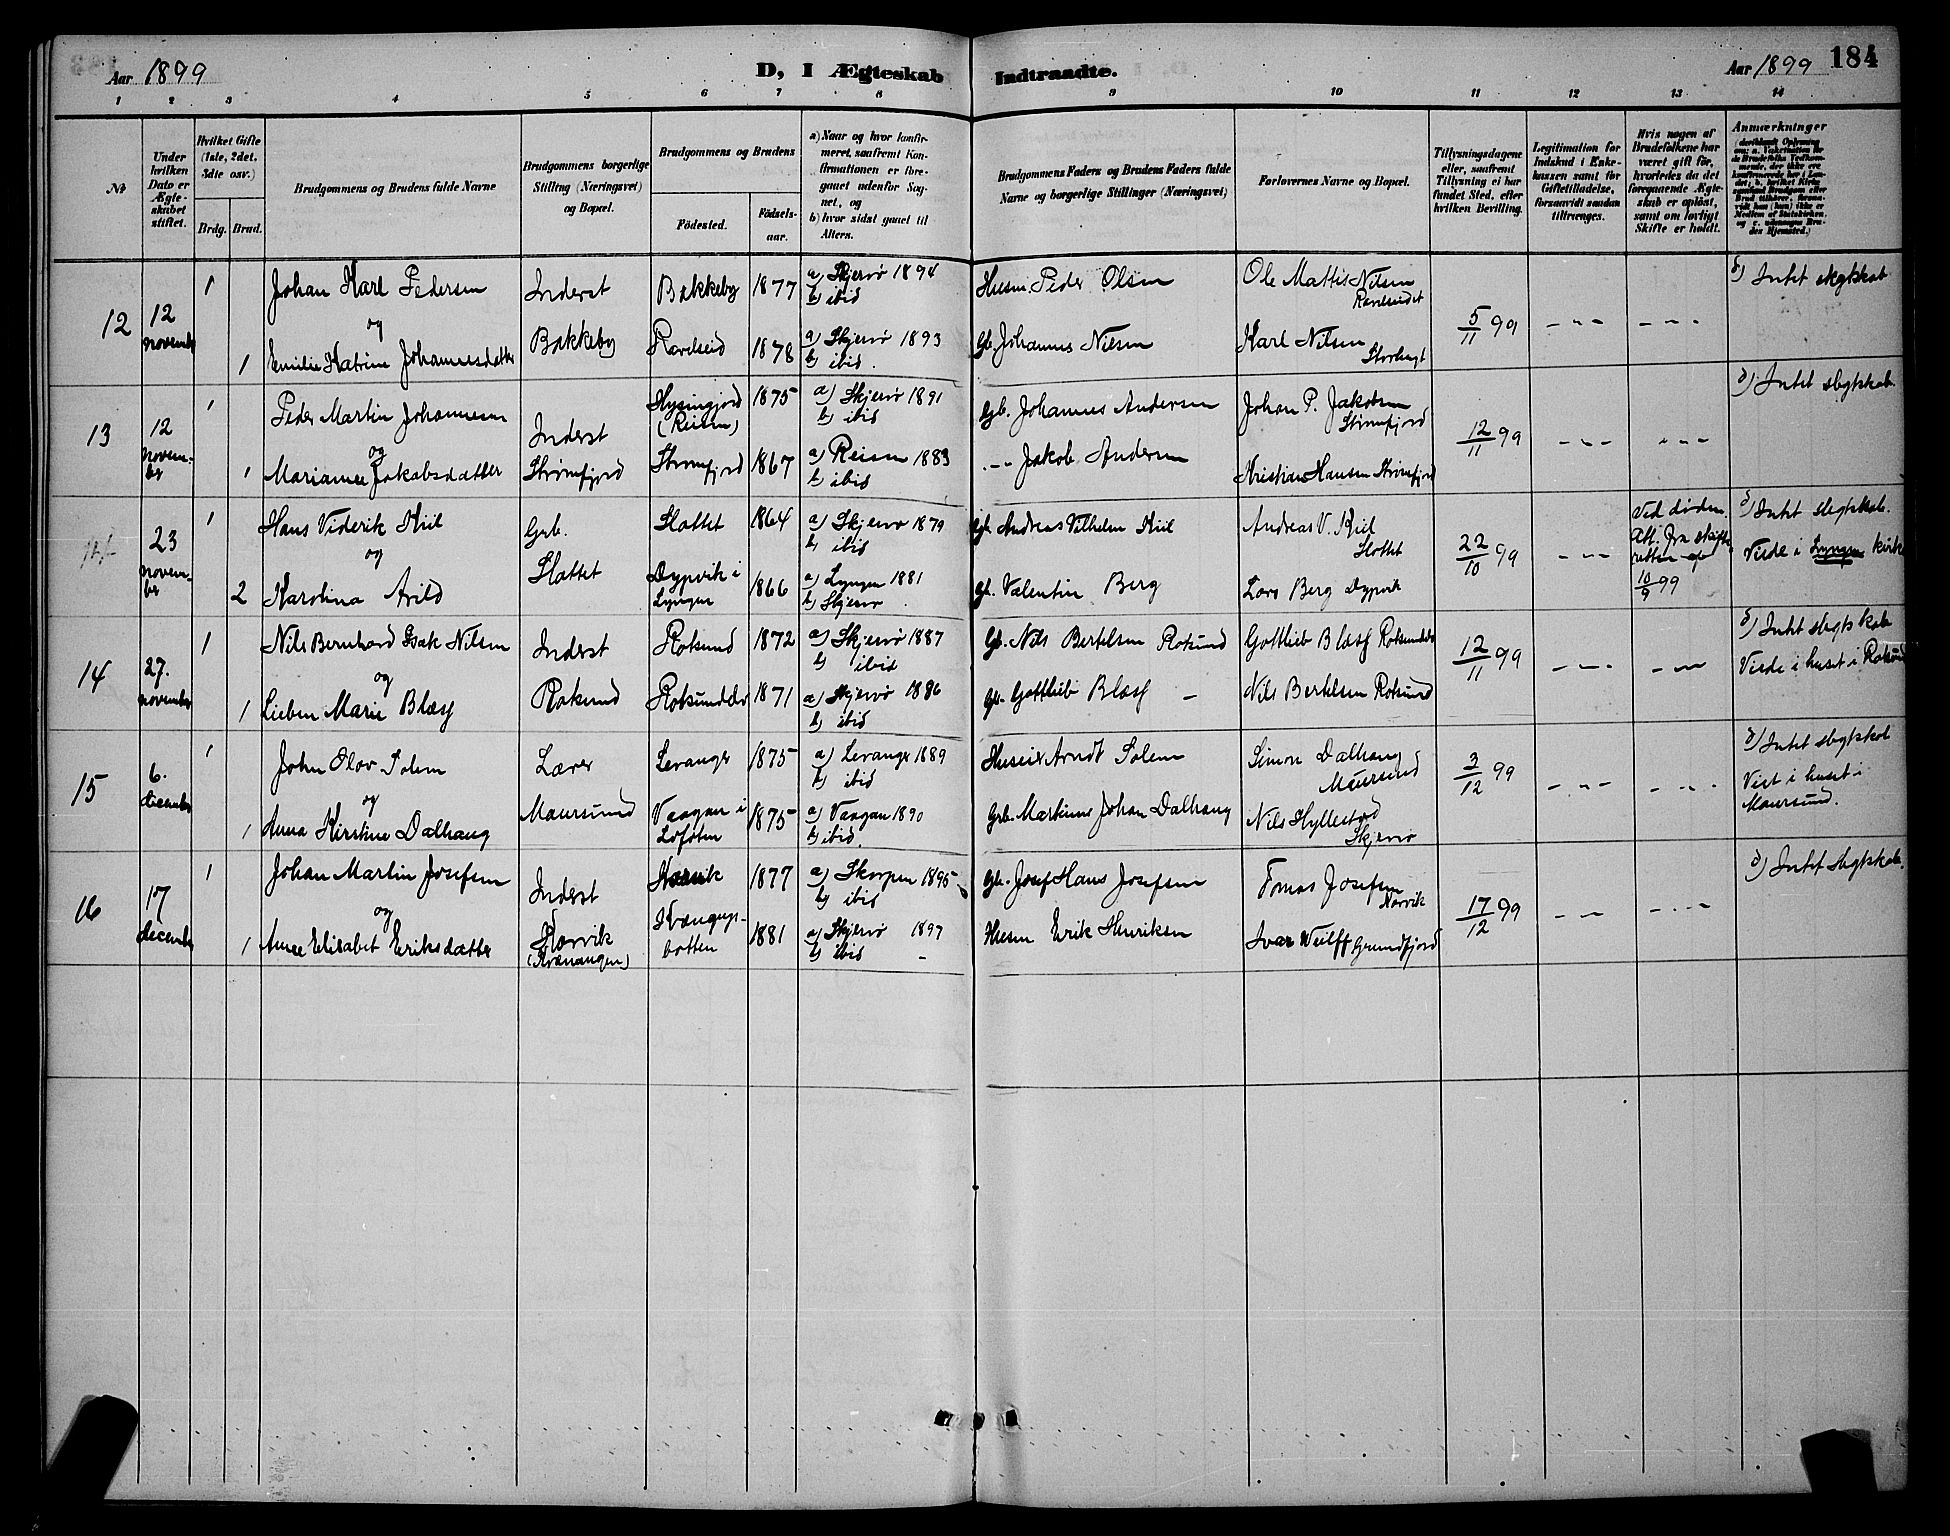 Aar 1899
D, I Ægteskab Indtraadte.
Aar 1899
184
1 2 3 4 5 6 7 8 9 10 11 12 13 14
No
Under hvilken Dato er Ægteskabet stiftet.
Hvilket Gifte (1ste, 2det, 3dte osv.)
Brdg. Brud.
Brudgommens og Brudens fulde Navne
Brudgommens borgerlige Stilling (Næringsvei) og Bopæl.
Brudgommens og Brudens
Fødested.
Fødselsaar.
a) Naar og hvor konfirmeret, saafremt Konfirmationen er foregaaet udenfor Sognet, og
b) hvor sidst gaaet til Alters.
Brudgommens Faders og Brudens Faders fulde Navne og borgerlige Stillinger (Næringsvei)
Forlovernes Navne og Bopæl.
Tillysningsdagene eller, saafremt Tillysning ei har fundet Sted, efter hvilken Bevilling.
Legitimation for Indskud i Enkekassen samt for Giftetilladelse, forsaavidt saadan tiltrænges.
Hvis nogen af Brudefolkene har været gift før, hvorledes da det foregaaende Ægteskab er opløst, samt om lovligt Skifte er holdt.
Anmærkninger
12
12 novemb
1
Johan Karl Pedersen
og
1
Emilie Katrine Johannesdatter
Inderst
Bakkeby
Bakkeby 1877
Ravelseid 1878
a) Skjervø 1894
b) ibid
a) Skjervø 1893
b) ibid.
Husm. Peder Olsen
Gb. Johannes Nilsen
Ole Mattis Nilsen
Ravelseidet
Karl Nilsen
Storbugt
5/11 99
- " -
- " -
d) Intet slegtskab
13
12 november
1
Peder Martin Johannesen
og
1
Marianne Jakobsdatter
Inderst
Strømfjord
(Reisen) 1875
Strømfjord 1867
a) Skjervø 1891
b) ibid
a) Reisen 1883
b) ibid
Gb. Johannes Andersen
- " - Jakob Andersen
Johan P. Jakobsen
Strømfjord
Kristian Hansen Strømfjord
12/11 99
- " -
- " -
d) Intet slegtskab
23 november
1
Hans Viderik Kiil
og
2
Karolina Arild
Grb.
Slottet
Slottet 1864
Dypvik i Lyngen 1866
a) Skjervø 1879
b) ibid
a) Lyngen 1881
b) Skjervø
Gb. Andreas Vilhelm Kiil
Gb. Valentin Berg
Andreas V. Kiil
Slottet
Lars Berg Dypvik
22/10 99
- " -
Ved døden.
Att. fra skifteretten af
10/9 99
d) Intet slegtskab.
Viede i Lyngen kirke
14
27. november
1
Nils Bernhard Isak Nilsen
og
1
Lieben Marie Blæsg
Inderst
Roksund
Roksund 1872
Roksunddal 1871
a) Skjervø 1887
b) ibid
a) Skjervø 1886
b) ibid
Gb. Nils Bertelsen Roksund
Gb. Gottlieb Blæsg -
Gottlieb Blæsg
Nils Bertelsen Roksund
12/11 99
- " -
- " -
d) Intet slegtskab
Viede i huset i Roksund
15
6. december
1
John Olov Solem
og
1
Anna Kirstine Dalhaug
Lærer
Maursund
Levanger 1875
Vaagan i Lofoten 1875
a) Levanger 1889
b) ibid
a) Vaagan 1890
b) ibid.
Arndt Solem
Grb. Martinus Johan Dalhaug
Simon Dalhaug
Maursund
Nils Hyllestad
Skjervø
3/12 99
- " -
- " -
d) Intet slegtskab
Viet i huset i Maursund.
16
17 decemb
1
Johan Martin Josefsen
og
1
Anne Elisabet Eriksdatter
Inderst
(Kvænangen)
1877
Kvænangsbotten 1881
a) Skorpen 1895
b) ibid
a) Skjervø 1897
b) ibid
Gb. Josef Hans Josefsen
Husm Erik Henriksen
Tomas Josefsen
Ivar Wulff Grundfjord
17/12 99
- " -
- " -
d) Intet slegtskab.